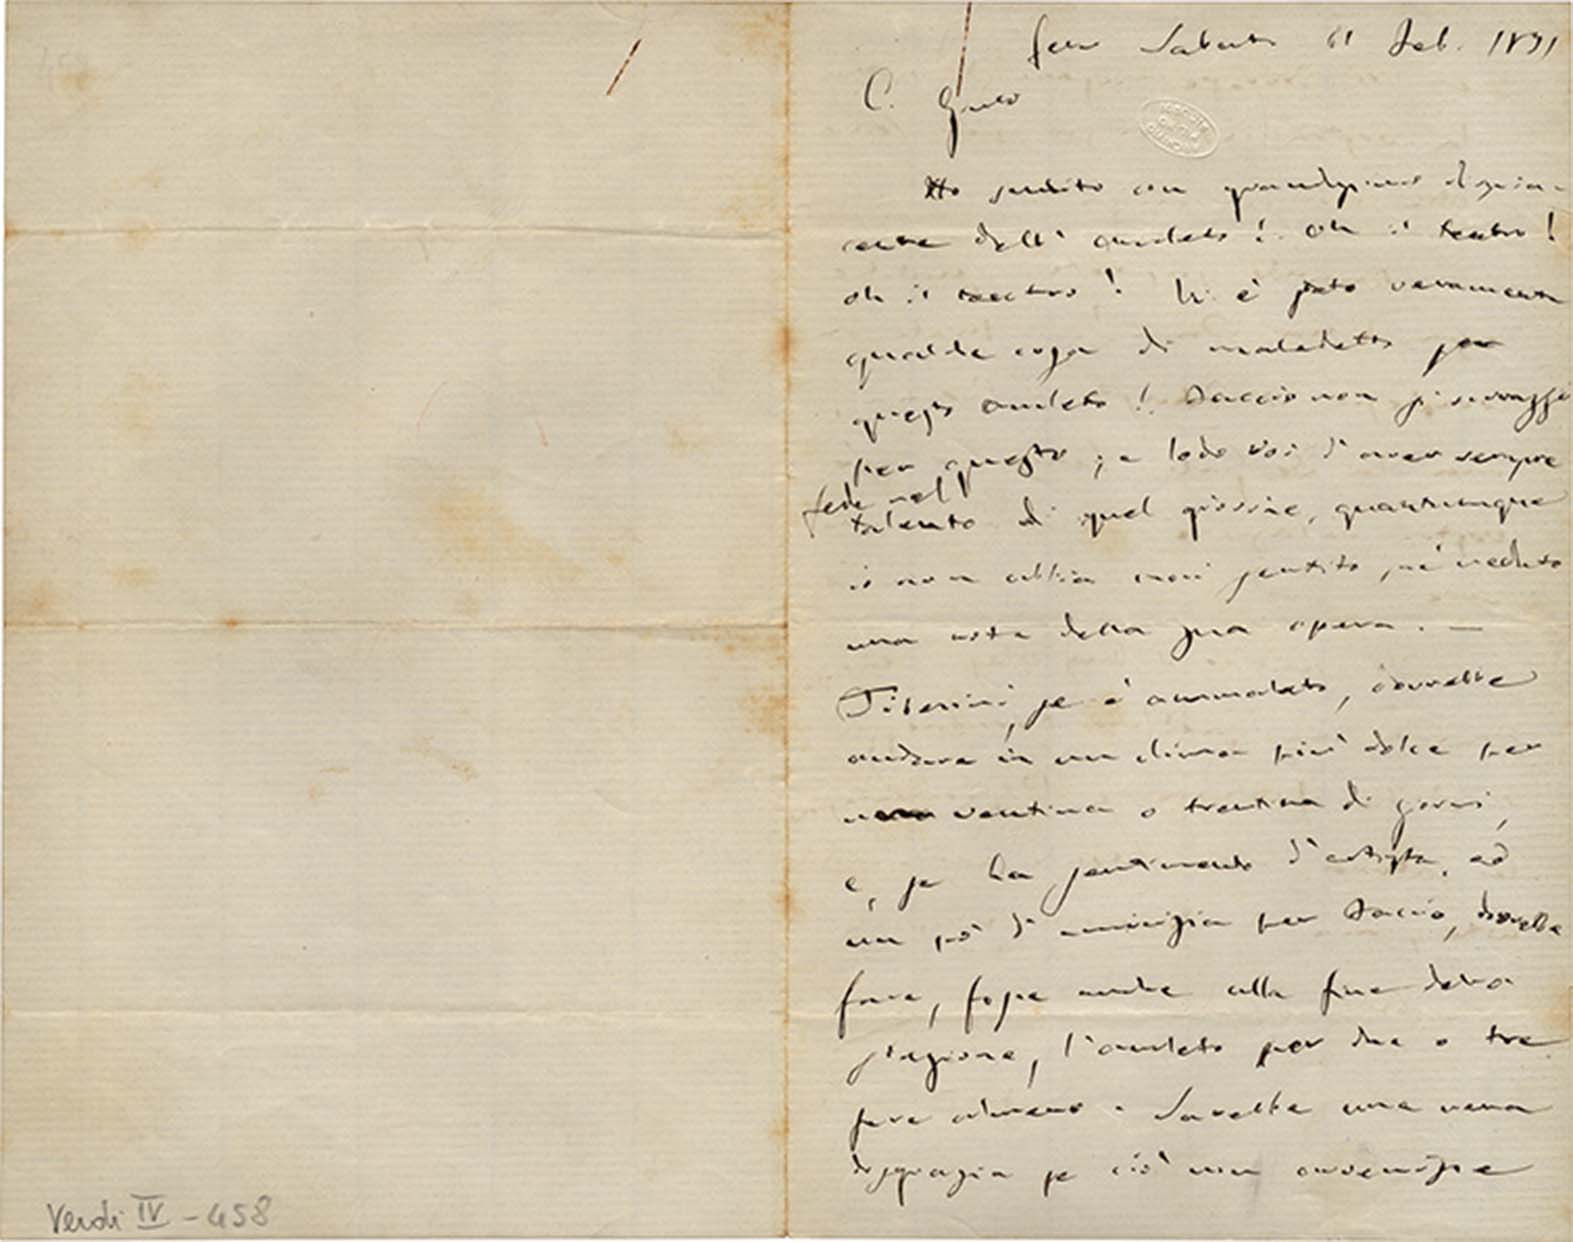 Verdi IV - 458
Sabato 11 Feb. 1871
C. Giulio
Ho sentito con grandissimo dispia-
cenze dell'Amleto! Oh il teatro!
oh il teatro! Vi è stato veramente
qualche cosa di maledetto per
questo Amleto! Faccio non si scoraggi
per questo; e lodo Voi d'aver sempre
fede nel
talento di quel giovine, quantunque
io non abbia mai sentito, nè veduto
una nota della sua opera. —
Tiberini, se è ammalato, dovrebbe
andare in un clima più dolce per
una ventina o trentina di giorni,
e, se ha sentimento d'artista, ed
un pò d'amicizia per Faccio, dovrebbe
fare, fosse anche alla fine della
stagione, l'Amleto per due o tre
sere almeno. Sarebbe una vera
disgrazia se ciò non avvenisse